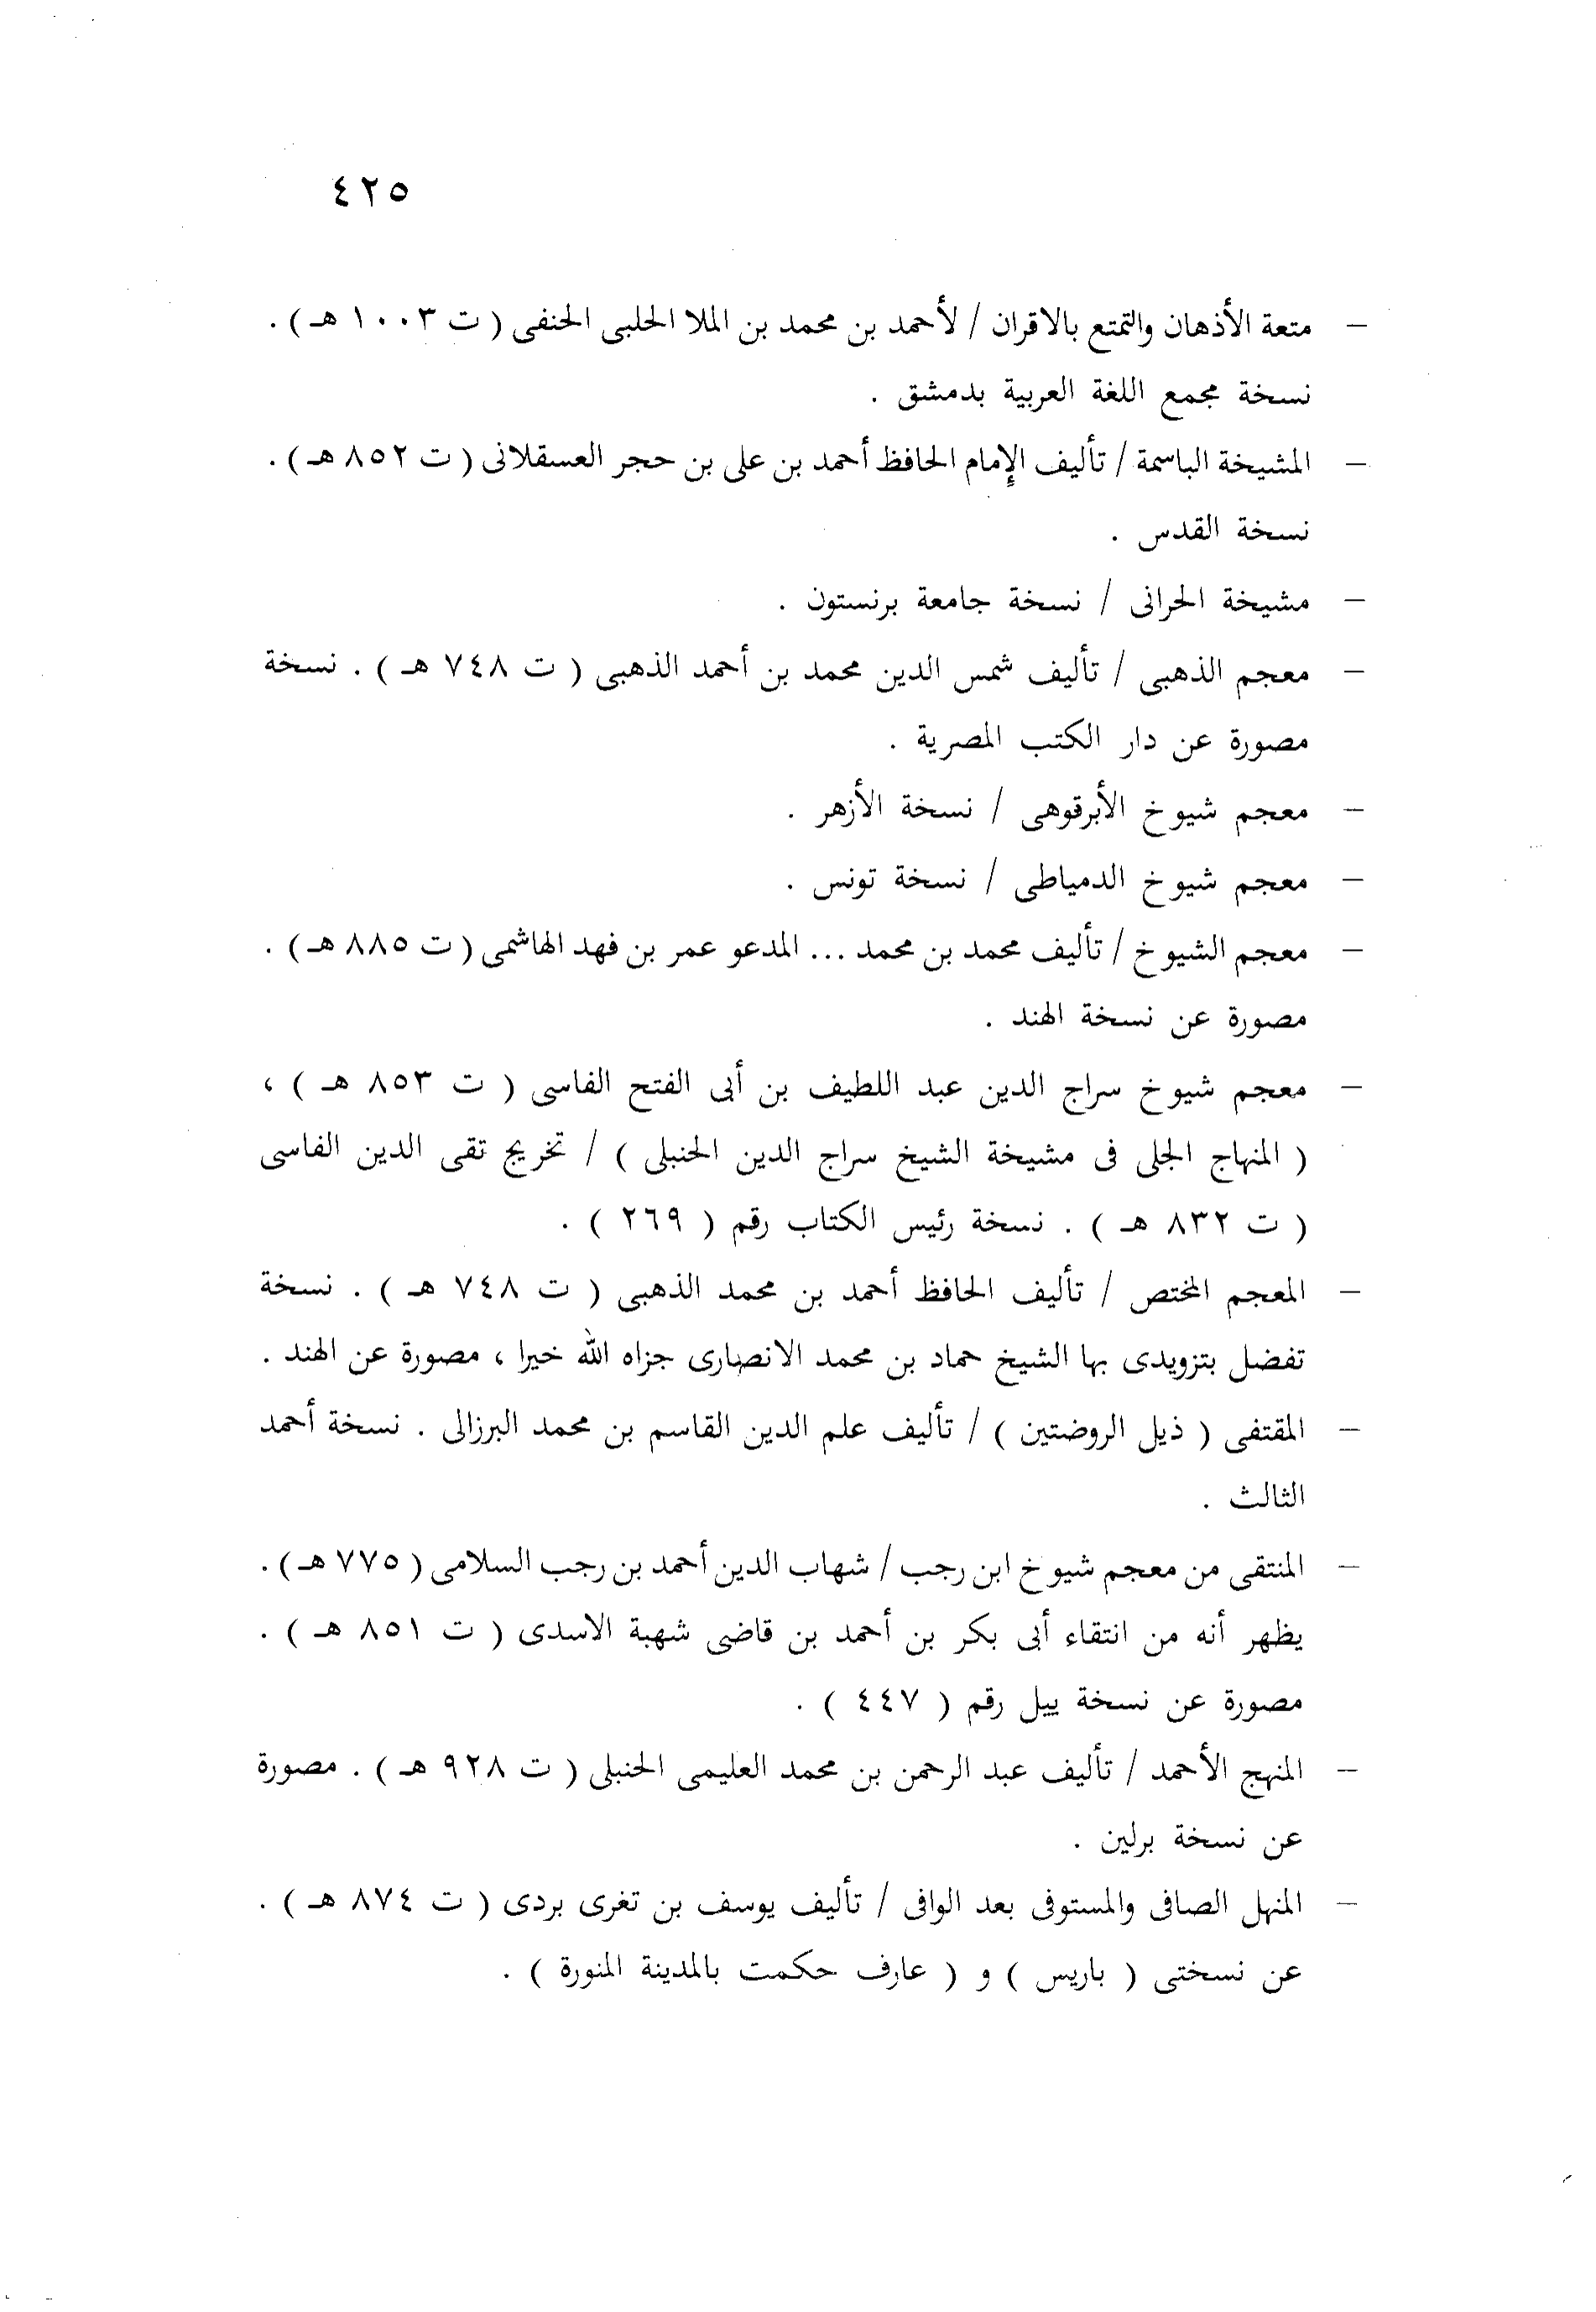 ٤٢٥
– متعة الأذهان والتمتع بالاقران / لأحمد بن محمد بن الملا الحلبى الحنفى ( ت ١٠٠٣ هـ ) .
نسخة مجمع اللغة العربية بدمشق .
– المشيخة الباسمة / تأليف الإمام الحافظ أحمد بن على بن حجر العسقلانى ( ت ٨٥٢ هـ ) .
نسخة القدس .
– مشيخة الحرانى / نسخة جامعة برنستون .
– معجم الذهبى / تأليف شمس الدين محمد بن أحمد الذهبى ( ت ٧٤٨ هـ ) . نسخة
مصورة عن دار الكتب المصرية .
– معجم شيوخ الأبرقوهى / نسخة الأزهر .
– معجم شيوخ الدمياطى / نسخة تونس .
– معجم الشيوخ / تأليف محمد بن محمد ... المدعو عمر بن فهد الهاشمى ( ت ٨٨٥ هـ ) .
مصورة عن نسخة الهند .
– معجم شيوخ سراج الدين عبد اللطيف بن أبى الفتح الفاسى ( ت ٨٥٣ هـ ) ،
( المنهاج الجلى فى مشيخة الشيخ سراج الدين الحنبلى ) / تخريج تقى الدين الفاسى
( ت ٨٣٢ هـ ) . نسخة رئيس الكتاب رقم ( ٢٦٩ ) .
– المعجم المختص / تأليف الحافظ أحمد بن محمد الذهبى ( ت ٧٤٨ هـ ) . نسخة
تفضل بتزويدى بها الشيخ حماد بن محمد الانصارى جزاه الله خيرا ، مصورة عن الهند .
– المقتفى ( ذيل الروضتين ) / تأليف علم الدين القاسم بن محمد البرزالى . نسخة أحمد
الثالث .
– المنتقى من معجم شيوخ ابن رجب / شهاب الدين أحمد بن رجب السلامى ( ٧٧٥ هـ ) .
يظهر أنه من انتقاء أبى بكر بن أحمد بن قاضى شهبة الاسدى ( ت ٨٥١ هـ ) .
مصورة عن نسخة ييل رقم ( ٤٤٧ ) .
– المنهج الأحمد / تأليف عبد الرحمن بن محمد العليمى الحنبلى ( ت ٩٢٨ هـ ) . مصورة
عن نسخة برلين .
– المنهل الصافى والمستوفى بعد الوافى / تأليف يوسف بن تغرى بردى ( ت ٨٧٤ هـ ) .
عن نسختى ( باريس ) و ( عارف حكمت بالمدينة المنورة ) .